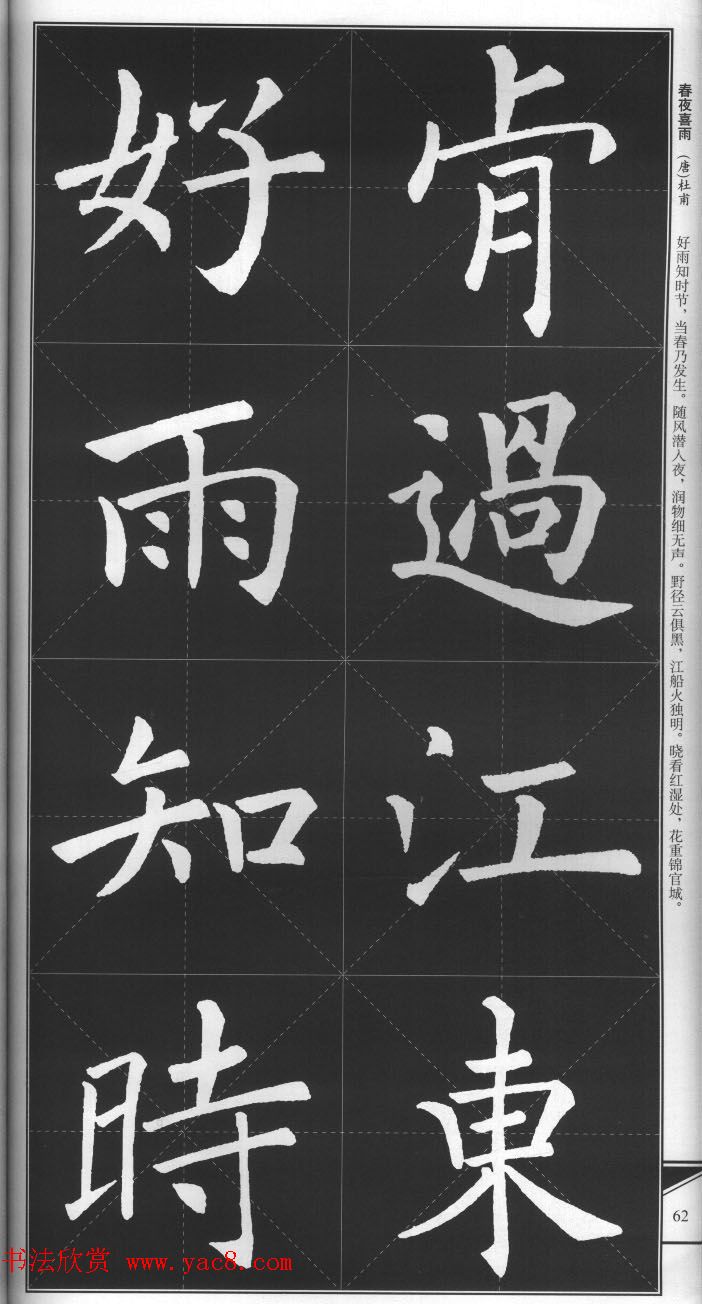 肯過江東
好雨知時
春夜喜雨 (唐)杜甫 好雨知时节，当春乃发生。随风潜入夜，润物细无声。野径云俱黑，江船火独明。晓看红湿处，花重锦官城。
62
书法欣赏 www.yac8.com